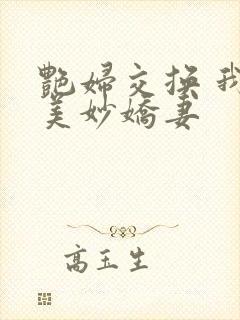 艷婦交换 我
美妙嬌妻
高玉生